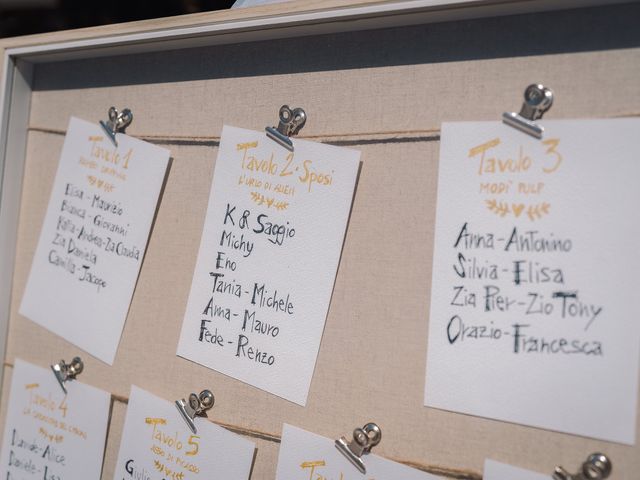 Tavolo 1
Elisa-Maurizio
Bianca-Giovanni
Katia-Andrea-Zia Claudia
Zia Daniela
Camilla-Jacopo
Tavolo 2-Sposi
L'URLO DI ALIEN
K & Saggio
Michy
Eno
Tania-Michele
Anna-Mauro
Fede-Renzo
Tavolo 3
MODÌ PULP
Anna-Antonino
Silvia-Elisa
Zia Pier-Zio Tony
Orazio-Francesca
Tavolo 4
Davide-Alice
Daniele-
Tavolo 5